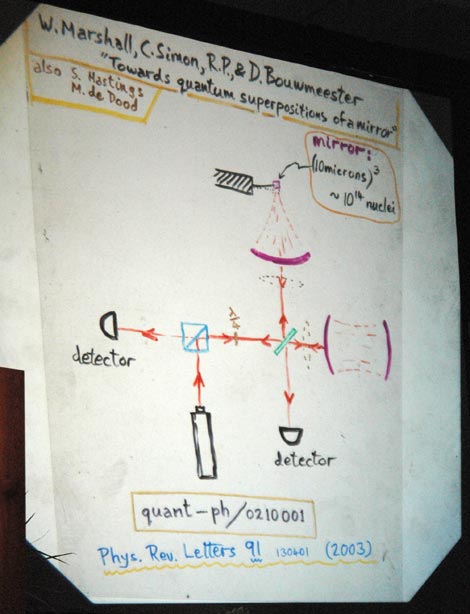 W. Marshall, C. Simon, R.P., & D. Bouwmeester
"Towards quantum superpositions of a mirror"
also S. Hastings
M. de Dood
mirror:
(10microns)³
~ 10¹⁴ nuclei
λ/4
detector
detector
quant-ph/0210001
Phys. Rev. Letters 91 130401 (2003)